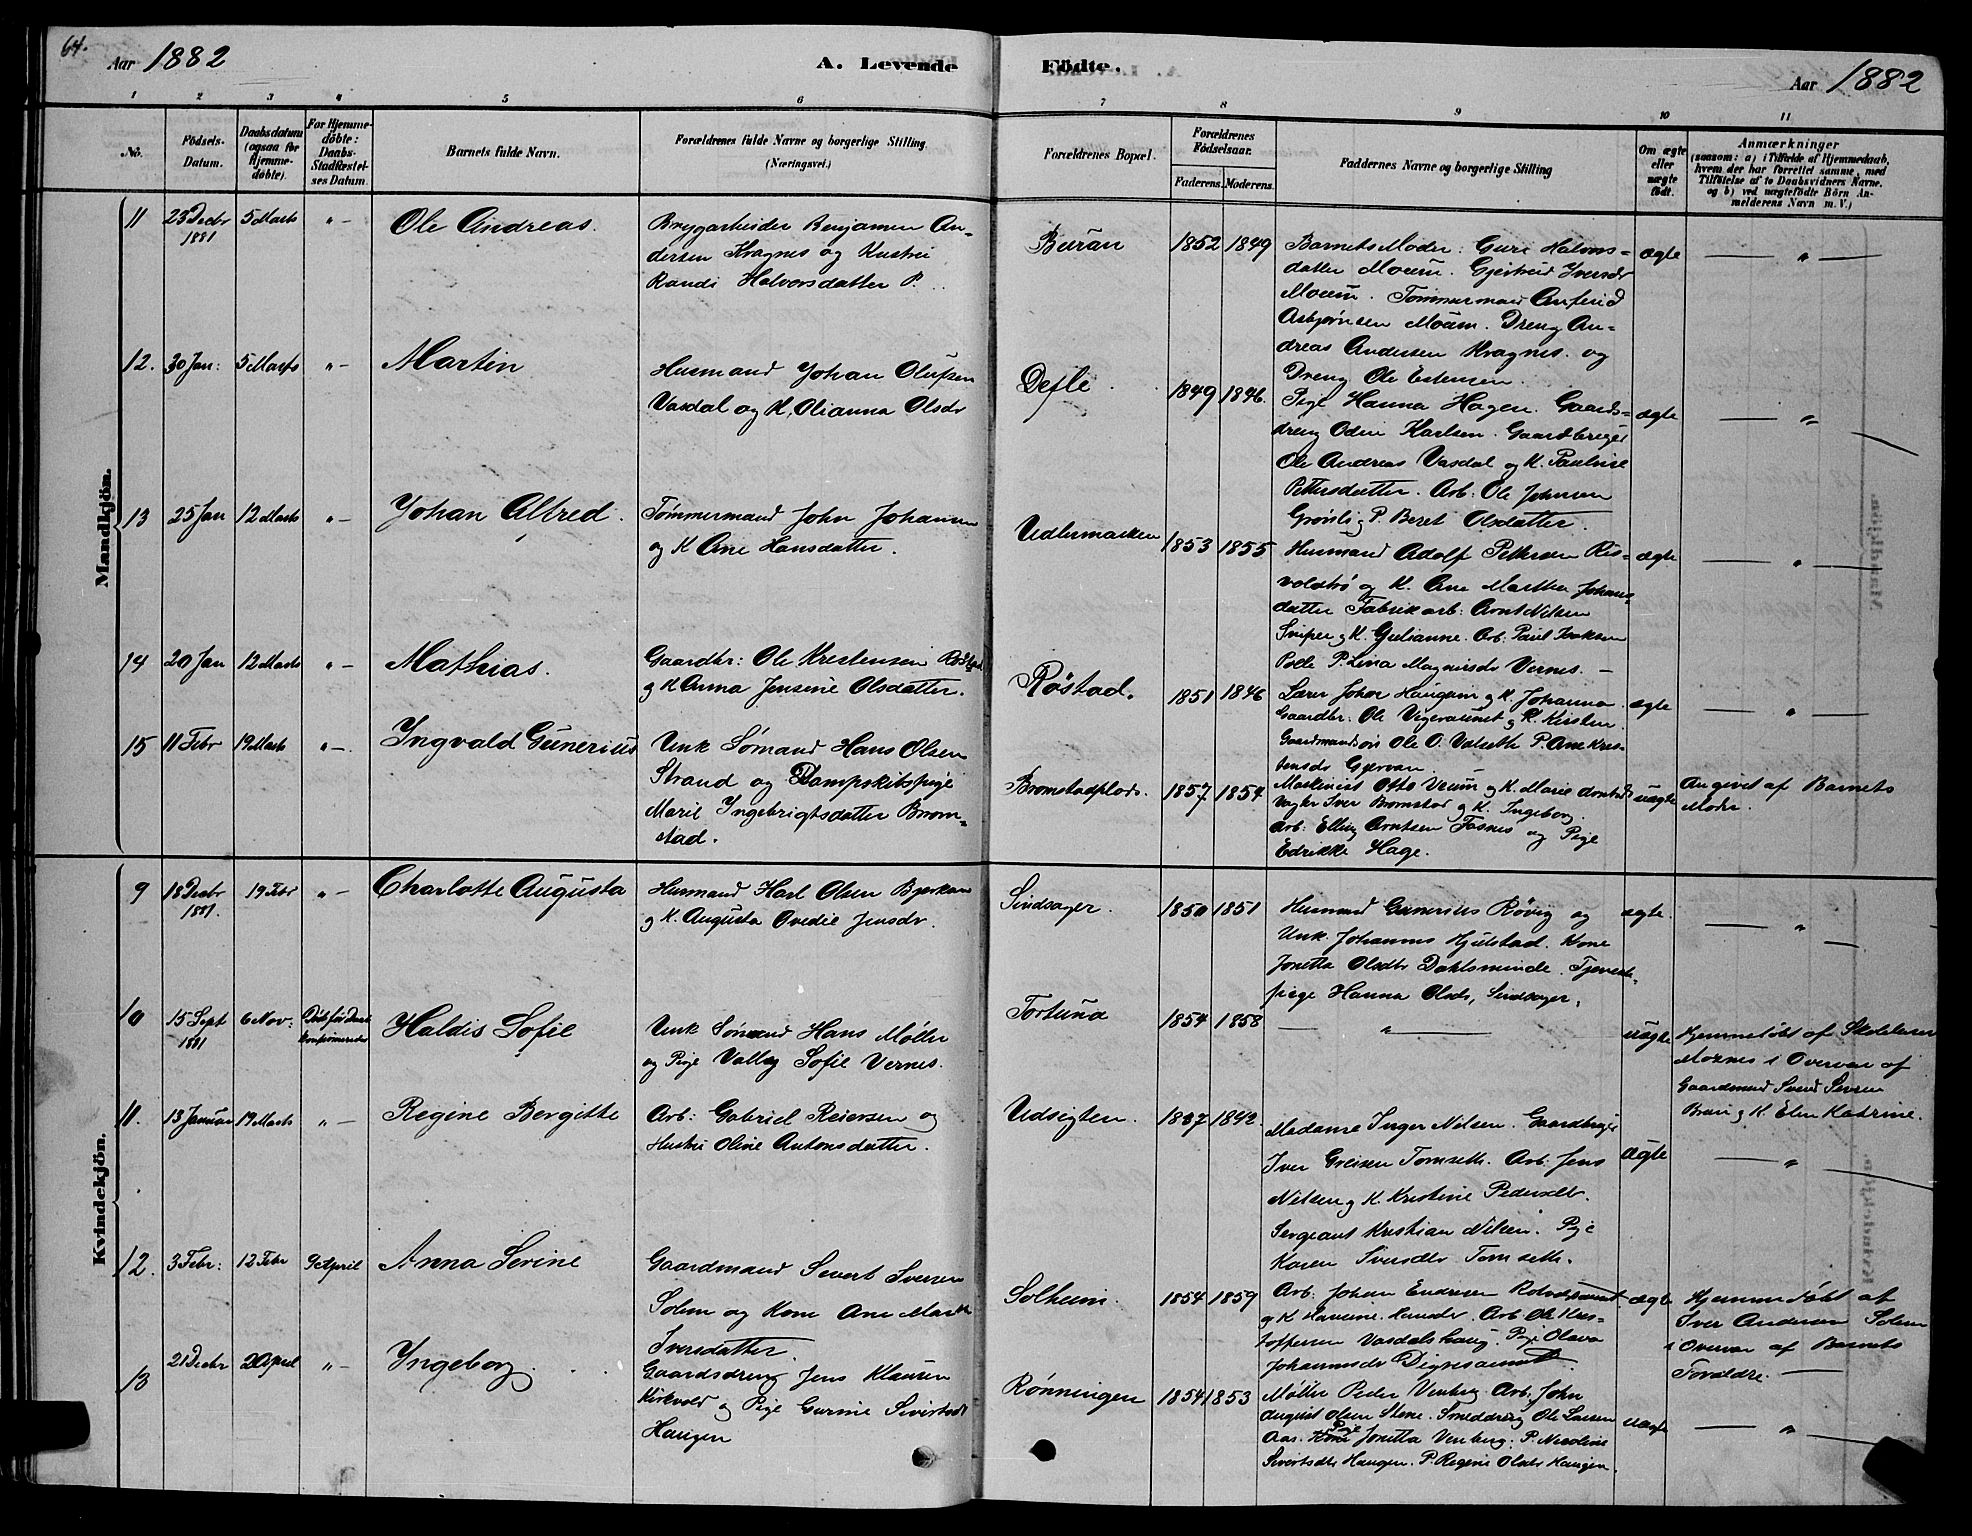 64.
Aar 1882
A. Levende
Födte.
Aar 1882
1 2 3 4 5 6 7 8 9 10 11
No.
Födsels-
Datum.
Daabsdatum
(ogsaa for
Hjemme-
döbte).
For Hjemme-
döbte:
Daabs-
Stadfæstel-
ses Datum.
Barnets fulde Navn.
Forældrenes fulde Navne og borgerlige Stilling
(Næringsvei.)
Forældrenes Bopæl.
Forældrenes
Födselsaar.
Faderens.
Moderens.
Faddernes Navne og borgerlige Stilling
Om ægte
eller
uægte
födt.
Anmærkninger
(saasom: a) i Tilfælde af Hjemmedaab,
hvem der har forrettet samme, med
Tilföielse af to Daabsvidners Navne.
og b) ved uægtefödte Börn An-
melderens Navn m. V.)
Mandkjön.
11 23 Decbr 5 Marts " - Ole Andreas.
1881
Brygarbeider Benjamin An-
dersen Kragnes og Hustru
Randi Halvorsdatter P.
Buran 1852 1849
Barnets Moder. Guri Halvors-
datter Moum. Gjertrud Iversdr
Moum. Tömmermand Anfind
Asbjørnsen Moum. Dreng An-
dreas Andersen Kragnes. og
Dreng Ole Estensen.
ægte - " -
12. 30 Jan: 5 Marts " - Martin
Husmand Johan Olufsen
Vasdal og K. Olianna Olsdr
Defle 1849 1846.
Pige Hanna Hagen. Gaards-
dreng Odin Karlsen. Gaardbruger
Ole Andreas Vasdal og K. Pauline
Pettersdatter. Arb: Ole Johnsen
Grønli, P. Beret Olsdatter.
ægte - "
13 25 Jan 12 Marts " - Johan Alfred.
Tømmermand John Johansen
og K Ane Hansdatter.
Udlumarken 1853 1855
Husmand Adolf Pettersen Ris-
voldtrø og K. Ane Marthea Johans-
datter Fabrikarb: Arnt Nilsen
Sniper og K. Gulianne. Arb. Paul Isaksen
Polle P. Lina Magnusdr Vernes. -
ægte - " -
14 20 Jan 12 Marts " - Mathias.
Gaardbr: Ole Kristensen Röstad
og K Anna Jensine Olsdatter.
Røstad. 1851 1846
Lærer Johan Haugum og K. Johanna
Gaardbr. Ole Vigeraunet og K. Kirsten
Gaardmandssøn Ole O. Valseth P. Ane Kris-
tensdr Gjervan.
ægte - " -
15 11 Febr 19 Marts " - Ingvald Gunerius
Unk Sømand Hans Olsen
Strand og Dampskibspige
Marit Ingebrigtsdatter Brom-
stad.
Bromstadplads. 1857 1854
Maskinist Otto Uium og K. Marie Arntsdr
Vagter Iver Bromstad og K. Ingeborg.
Arb: Elling Arntsen Fosnes og Pige
Edrikke Hage.
uægte
Angivet af Barnets
Moder.
Kvindekjön.
9 18 Decbr 19 Febr " - Charlotte Augusta
1881.
Husmand Karl Olsen Bjerkan
og K. Augusta Ovedie Jensdr.
Sindsager. 1850 1851
Husmand Gunerius Røvig og
Unk. Johannes Hjulstad. Kone
Jonetta Olsdtr Dahlsminde. Tjeneste-
pige Hanna Olsdr, Sindsager.
ægte. - " -
10 15 Sept 6 Nov: Död för Daab Haldis Sofie
1881
Unk Sømand Hans Møller
og Pige Valbg Sofie Vernes.
Fortuna 1854 1858 - " -
uægte
Hjemmedöbt af Skolelærer
Moxnes i Overvær af
Gaardmand Svend Svensen
Bran og K. Elen Katrine.
11. 13 Januar 19 Marts " - Regine Bergitte
Arb: Gabriel Reiersen og
Hustru Oline Antonsdatter.
Udsigten. 1837 1842.
Madame Inger Nilsen. Gaardbruger
Iver Greisen Tomseth. Arb: Jens
Nilsen og K. Kristine Pedersdtr.
Sergeant Kristian Nilsen. Pige
Karen Iversdtr Tomseth.
ægte - " -
12. 3 Febr: 12 Febr 9 April Anna Serine
Gaardmand Sivert Iversen
Solem og Kone Ane Marth
Iversdatter.
Solheim. 1854 1859
Arb: Johan Endresen Rotvoldsaunet
og K Haverine. Husmdr. Arb Ole Kris-
toffersen Vasdalshaug. Pige Olava
Johannesdr Digresaunet.
ægte
Hjemmedöbt af
Iver Andersen Solem
i Overvær af Barnets
Forældre. -
13 21 Decbr 2 April " - Ingeborg
Gaardsdreng Jens Klausen
Kirkvold og Pige Gurine Sivertsdtr
Haugen
Rønningen 1854 1853
Møller Peder Venberg. Arb. John
August Olsen Stene. Smeddreng Ole Larsen
Aas. Pige Jonetta Venberg. P. Nicoline
Sivertsdtr Haugen. P. Regine Olsdtr Haugen.
uægte - "